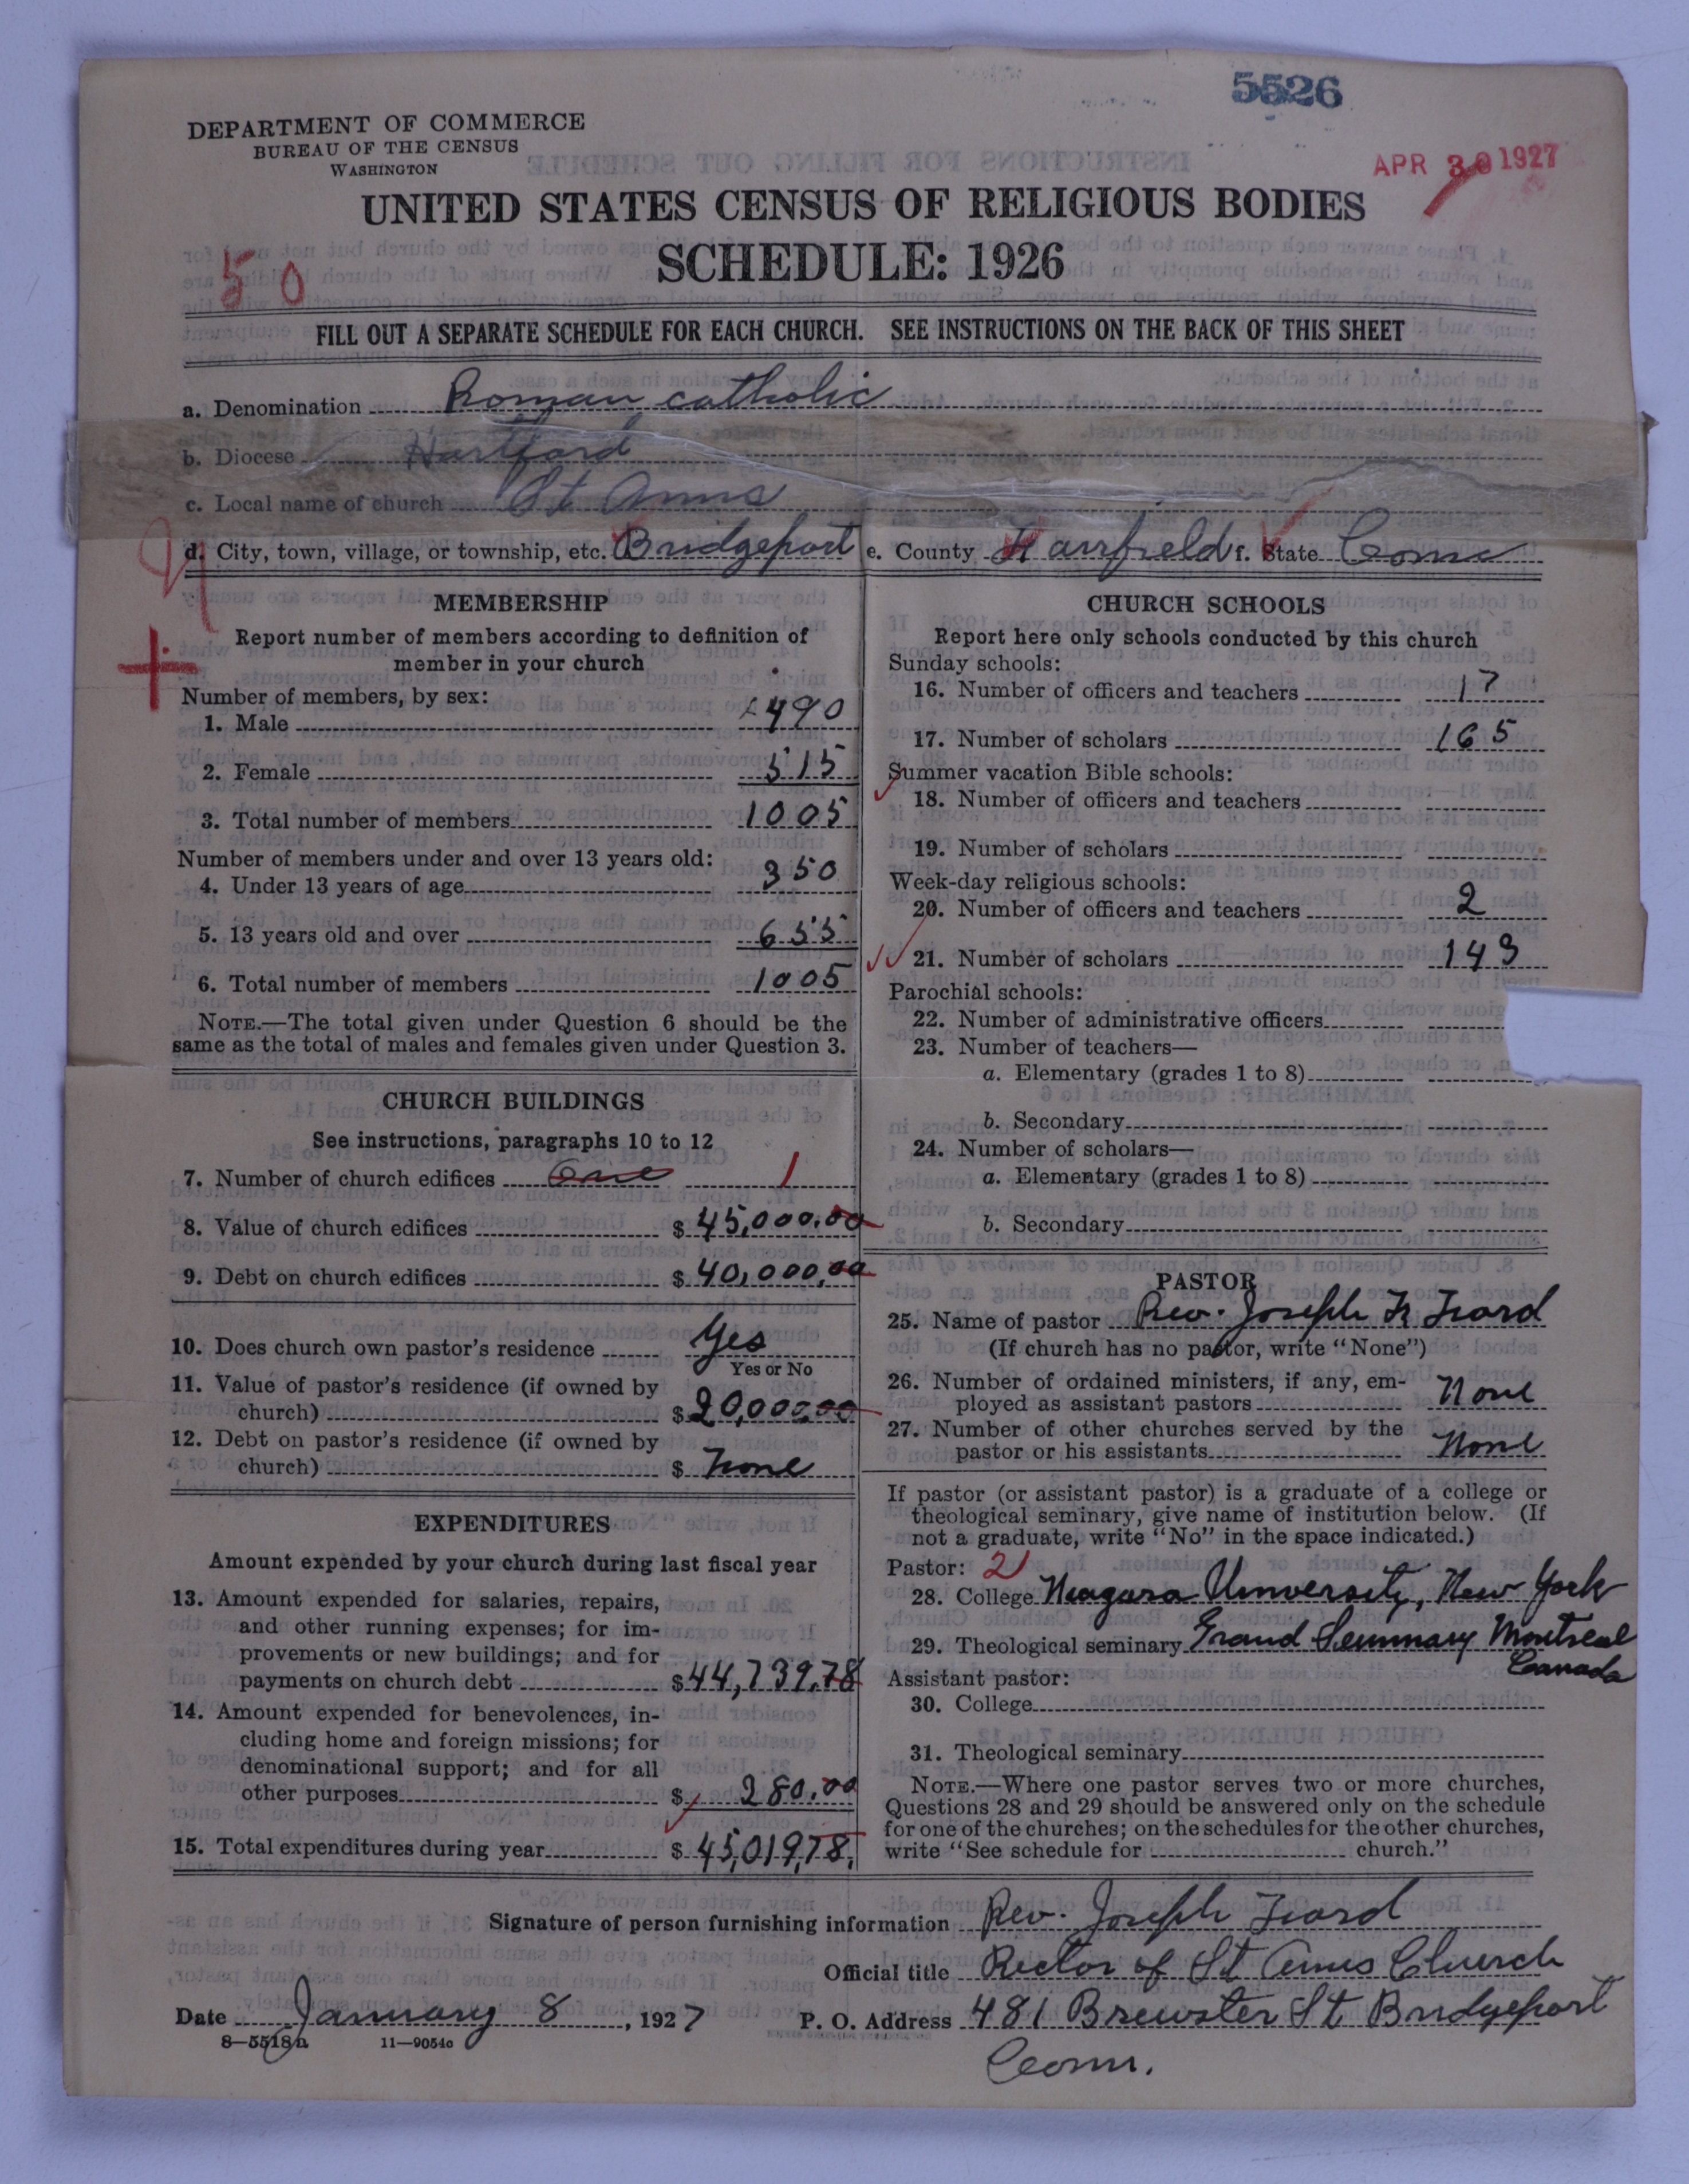 5526
DEPARTMENT OF COMMERCE
BUREAU OF THE CENSUS
WASHINGTON
APR 30 1927
UNITED STATES CENSUS OF RELIGIOUS BODIES
SCHEDULE: 1926
50
FILL OUT A SEPARATE SCHEDULE FOR EACH CHURCH. SEE INSTRUCTIONS ON THE BACK OF THIS SHEET
a. Denomination Roman catholic
b. Diocese Hartford
c. Local name of church St Anns
d. City, town, village, or township, etc. Bridgeport e. County Fairfield f. State Conn
MEMBERSHIP
Report number of members according to definition of
member in your church
Number of members, by sex:
1. Male 490
2. Female 515
3. Total number of members 1005
Number of members under and over 13 years old:
4. Under 13 years of age 350
5. 13 years old and over 655
6. Total number of members 1005
NOTE.—The total given under Question 6 should be the
same as the total of males and females given under Question 3.
CHURCH BUILDINGS
See instructions, paragraphs 10 to 12
7. Number of church edifices one 1
8. Value of church edifices $ 45,000.00
9. Debt on church edifices $ 40,000.00
10. Does church own pastor's residence Yes
Yes or No
11. Value of pastor's residence (if owned by
church) $ 20,000.00
12. Debt on pastor's residence (if owned by
church) $ None
EXPENDITURES
Amount expended by your church during last fiscal year
13. Amount expended for salaries, repairs,
and other running expenses; for im-
provements or new buildings; and for
payments on church debt $ 44,739.78
14. Amount expended for benevolences, in-
cluding home and foreign missions; for
denominational support; and for all
other purposes $ 280.00
15. Total expenditures during year $ 45,019,78.
CHURCH SCHOOLS
Report here only schools conducted by this church
Sunday schools:
16. Number of officers and teachers 17
17. Number of scholars 165
Summer vacation Bible schools:
18. Number of officers and teachers
19. Number of scholars
Week-day religious schools:
20. Number of officers and teachers 2
21. Number of scholars 143
Parochial schools:
22. Number of administrative officers
23. Number of teachers—
a. Elementary (grades 1 to 8)
b. Secondary
24. Number of scholars—
a. Elementary (grades 1 to 8)
b. Secondary
PASTOR
25. Name of pastor Rev. Joseph
(If church has no pastor, write "None")
26. Number of ordained ministers, if any, em-
ployed as assistant pastors None
27. Number of other churches served by the
pastor or his assistants None
If pastor (or assistant pastor) is a graduate of a college or
theological seminary, give name of institution below. (If
not a graduate, write "No" in the space indicated.)
Pastor: 21
28. College Niagara University, New York
29. Theological seminary Grand Seminary Montreal
Canada
Assistant pastor:
30. College
31. Theological seminary
NOTE.—Where one pastor serves two or more churches,
Questions 28 and 29 should be answered only on the schedule
for one of the churches; on the schedules for the other churches,
write "See schedule for church."
Signature of person furnishing information Rev. Joseph
Official title Rector of St Anns Church
Date January 8, 1927 P. O. Address 481 Brewster St Bridgeport
Conn.
8—5518a 11—9054c